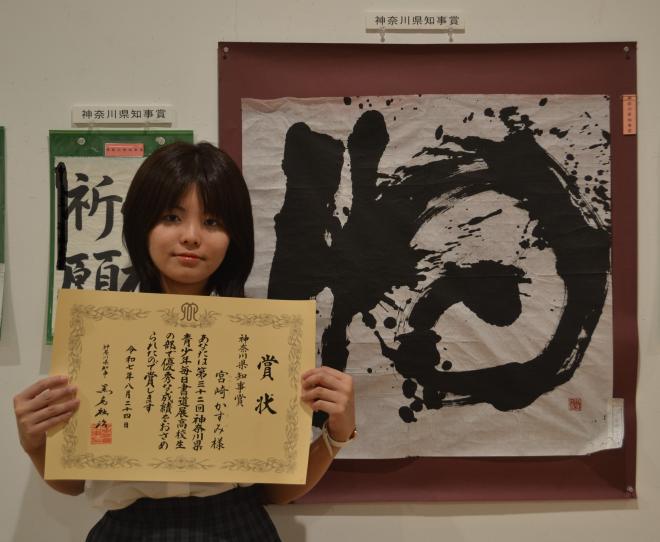 神奈川県知事賞
神奈川県知事賞
祈
願
賞状
神奈川県知事賞
宮崎かすみ様
あなたは第三十二回神奈川県
青少年毎日書道展高校生
の部で優秀な成績をおさめ
られたので賞します
令和七年八月二十四日
神奈川県知事
黒岩祐治